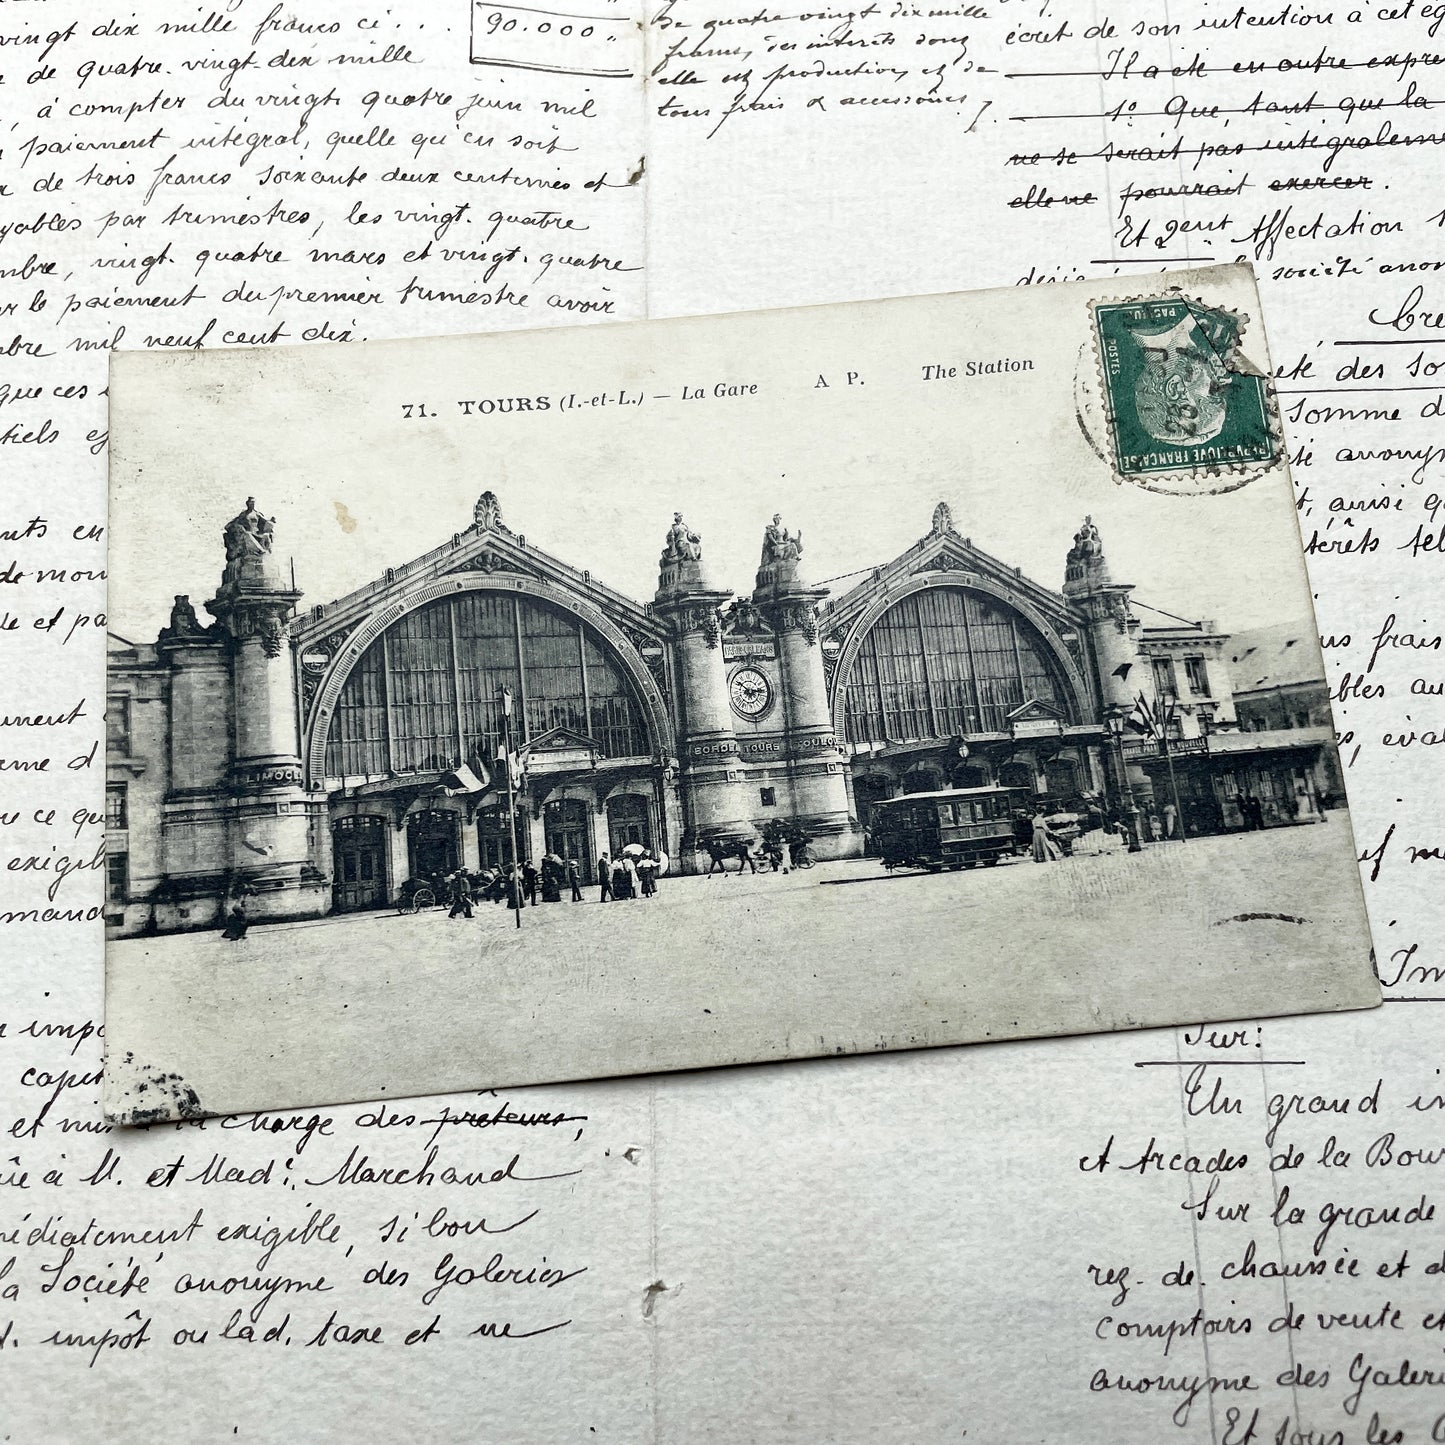 vingt dix mille francs ci . . .
90.000 „
de quatre. vingt-dix mille
, à compter du vingt. quatre juin mil
paiement intégral, quelle qu'en soit
de trois francs soixante deux centimes et
par trimestres, les vingt. quatre
mbre, vingt. quatre mars et vingt. quatre
le paiement du premier trimestre avoir
bre mil neuf cent dix.
que ces
nts en
de mon
le et pa
ument
eme d
ce qu
exigib
mand
impo
capit
et mis à la charge des prêteurs,
à M. et Made. Marchand
médiatement exigible, si bon
la Société anonyme des Galeries
impôt ou lad. taxe et ne
de quatre vingt dix mille
francs, des intérêts dont
elle est productive, et de
tous frais & accessoires
écrit de son intention à cet ég
Il a été en outre expre
1º Que, tant que la
ne se serait pas intégraleme
elle ne pourrait exercer .
Et 2ent Affectation
société anon
Cre
eté des So
Somme d
té anonym
t, ainsi q
térêts tel
us frais
ibles au
s, éval
uf m
Im
Sur:
Un grand im
et Arcades de la Bour
Sur la grande
rez. de. chaussée et d
comptoirs de vente et
anonyme des Galeri
Et tous les
71. TOURS (I.-et-L.) — La Gare A P. The Station
PASTEUR
POSTES
REPUBLIQUE FRANÇAISE
23
LIMOG
BORDE TOURS TOULO